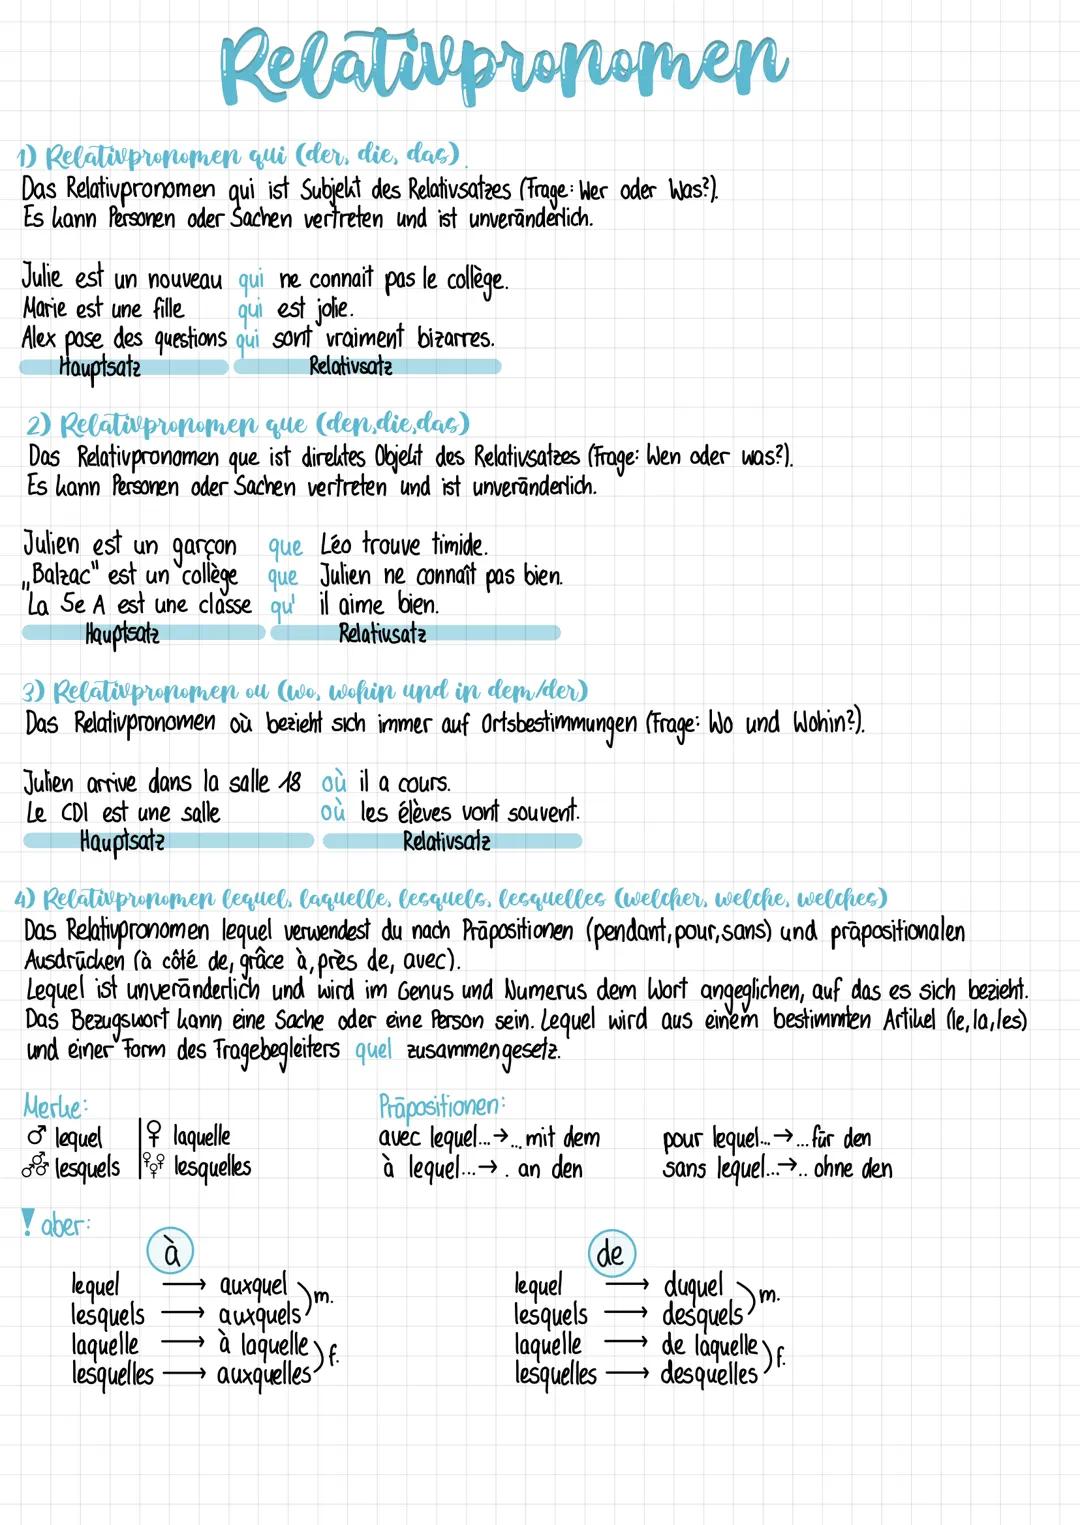 Relativpronomen
1) Relativpronomen qui (der, die, das).
Das Relativpronomen qui ist Subjekt des Relativsatzes (Frage: Wer oder Was?).
Es kann Personen oder Sachen vertreten und ist unveränderlich.
Julie est un nouveau qui ne connait pas le collège.
Marie est une fille qui est jolie.
Alex pose des questions qui sont vraiment bizarres.
Hauptsatz Relativsatz
2) Relativpronomen que (den, die, das)
Das Relativpronomen que ist direktes Objekt des Relativsatzes (Frage: Wen oder was?).
Es kann Personen oder Sachen vertreten und ist unveränderlich.
Julien est un garçon que Léo trouve timide.
„Balzac" est un collège que Julien ne connaît pas bien.
La 5e A est une classe qu' il aime bien.
Hauptsatz Relativsatz
3) Relativpronomen ou (wo, wohin und in dem/der)
Das Relativpronomen où bezieht sich immer auf Ortsbestimmungen (Frage: Wo und Wohin?).
Julien arrive dans la salle 18 où il a cours.
Le CDI est une salle où les élèves vont souvent.
Hauptsatz Relativsatz
4) Relativpronomen lequel, laquelle, lesquels, lesquelles (welcher, welche, welches)
Das Relativpronomen lequel verwendest du nach Präpositionen (pendant, pour, sans) und präpositionalen
Ausdrücken (à côté de, grâce à, près de, avec).
Lequel ist unveränderlich und wird im Genus und Numerus dem Wort angeglichen, auf das es sich bezieht.
Das Bezugswort kann eine Sache oder eine Person sein. Lequel wird aus einem bestimmten Artikel (le, la, les)
und einer Form des Fragebegleiters quel zusammengesetz.
Merke: Präpositionen:
♂ lequel ♀ laquelle avec lequel...→... mit dem pour lequel...→...für den
lesquels lesquelles à lequel...→. an den sans lequel...→.. ohne den
! aber:
à de
lequel → auxquel m. lequel → duquel m.
lesquels → auxquels lesquels → desquels
laquelle → à laquelle f. laquelle → de laquelle f.
lesquelles → auxquelles lesquelles → desquelles